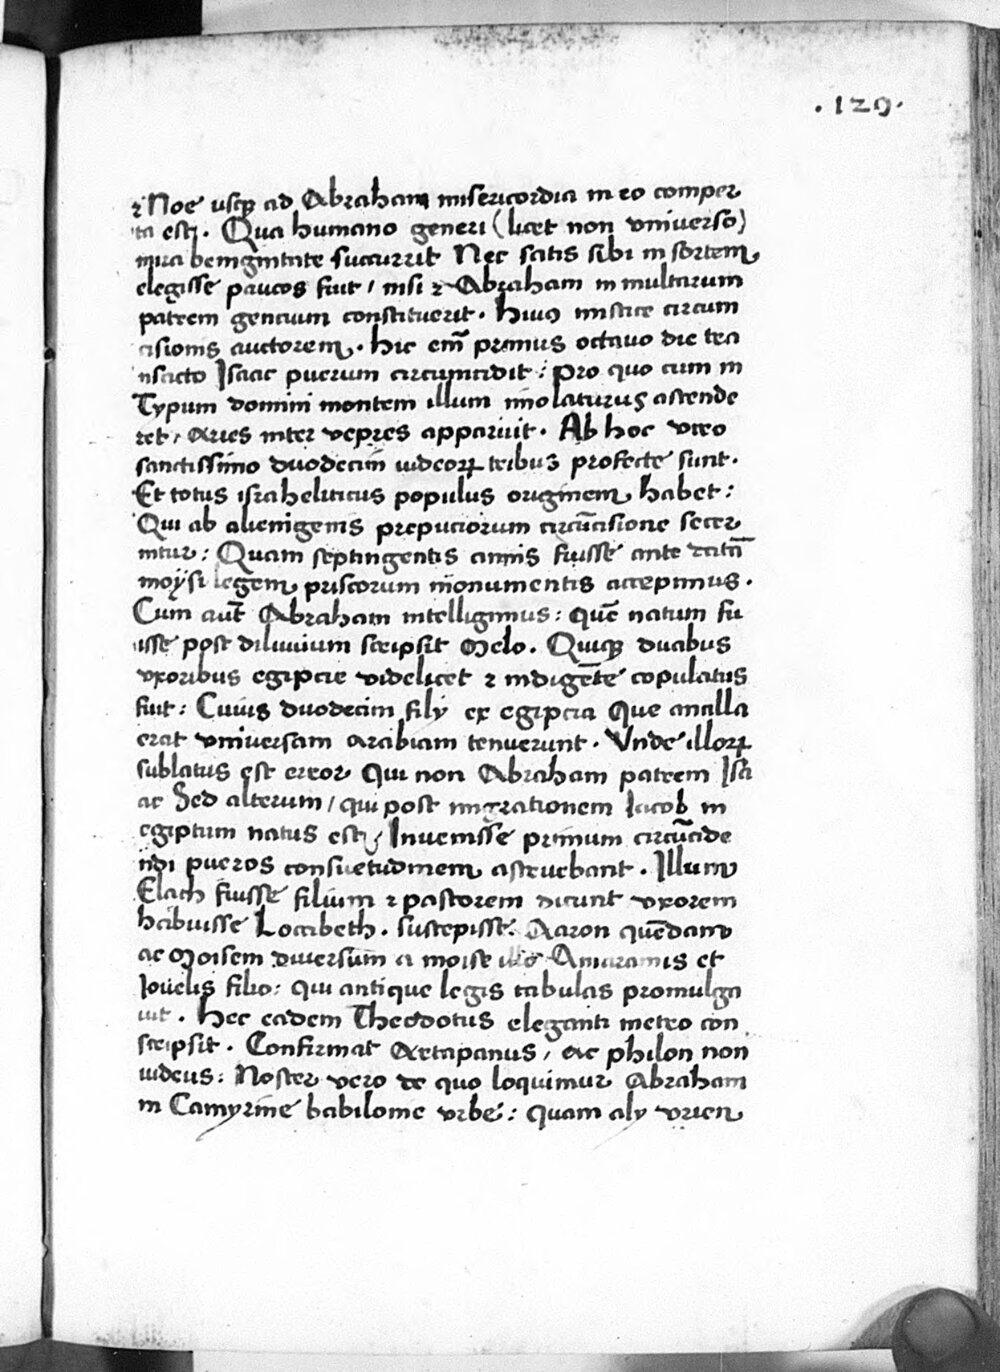 .129.
⁊ Noe usq̃ ad Abraham misericordia in eo comper
ta est. Qua humano generi (licet non vniverso)
mira benignitate succurrit Nec satis sibi in sortem
elegisse paucos fuit / nisi ⁊ Abraham in multarum
patrem gencium constituerit. Huius mistice circum
cisionis auctorem. hic em̃ primus octavo die tra
nsacto Isaac puerum circumcidit: pro quo cum in
Typum domini montem illum imolaturus ascende
ret, Aries inter vepres apparuit. Ab hoc viro
sanctissimo duodecim iudeoꝝ tribus profecte sunt.
Et totus israheliticus populus originem habet:
Qui ab alienigenis prepuciorum circũcisione secer
nitur: Quam septingentis annis fuisse ante
moysi legem priscorum monumentis accepimus.
Cum aut̃ Abraham intelligimus: quẽ natum fu
isse post diluvium scripsit Melo. Quiq̃ duabus
vxoribus egipcie videlicet ⁊ indigẽte copulatus
fuit: Cuius duodecim filÿ ex egipcia Que ancilla
erat vniversam arabiam tenuerunt. Vnde illoꝝ
sublatus est error Qui non Abraham patrem Isa
ac Sed alterum / qui post migrationem Iacob in
egiptum natus est, Invenisse primum circũcide
ndi pueros consuetudinem astruebant. Illum
Elach fuisse filium ⁊ pastorem dicunt vxorem
habuisse Loccibeth. suscepisse: Aaron quẽdam
ac Moisem diversum a moise illo Amaramis et
Iovelis filio: qui antique legis tabulas promulga
vit. Hec eadem Theodotus eleganti metro con
scripsit. Confirmat Artapanus, ac philon non
iudeus: Noster vero de quo loquimur Abraham
in Camyrine babilonie vrbe: quam alÿ vrien